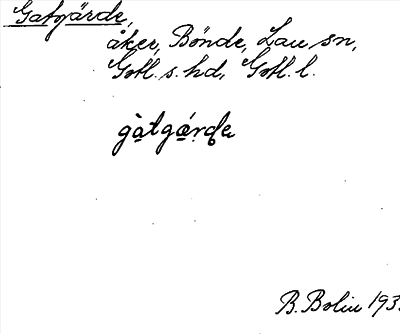 Gatgärde,
åker, Bönde, Lau sn,
Gotl. s. hd, Gotl. l.
gàtgǽrde
B. Bolin 193